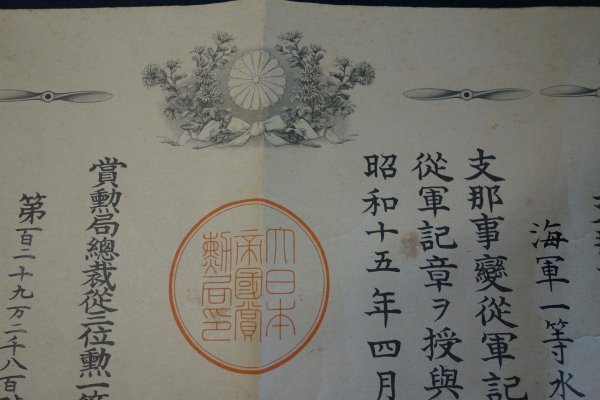 海軍一等水
支那事變從軍記
從軍記章ヲ授與
昭和十五年四月
大日本
帝國賞
勲局印
賞勲局總裁從三位勲一等
第百二十九万二千八百